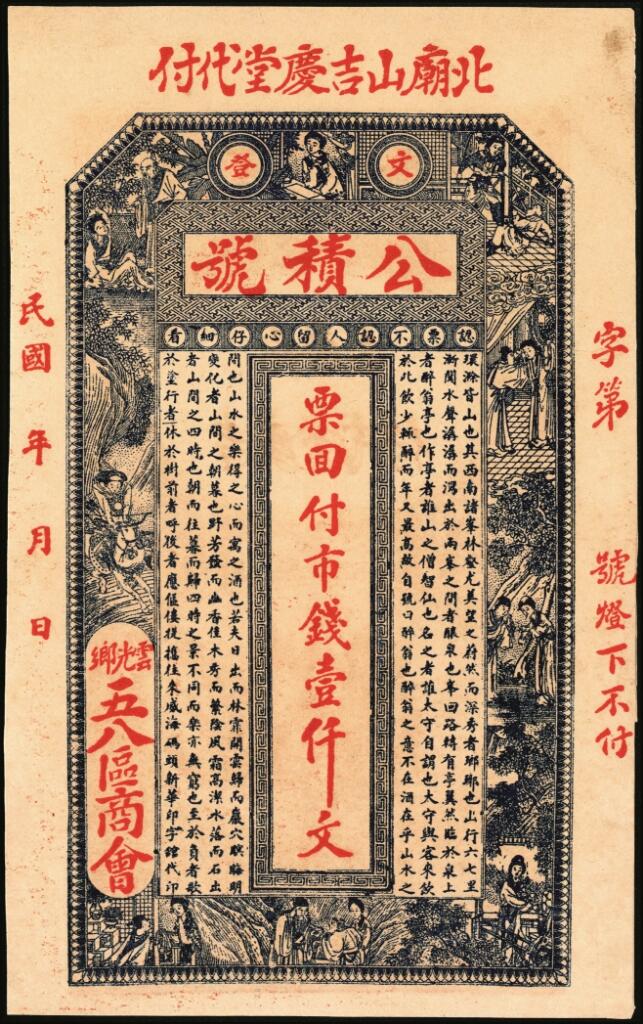 北廟山吉慶堂代付
文登
公積號
認票不認人留心仔細看
字第 號燈下不付
環滁皆山也其西南諸峯林壑尤美望之蔚然而深秀者瑯琊也山行六七里
漸聞水聲潺潺而瀉出於兩峯之間者釀泉也峯回路轉有亭翼然臨於泉上
者醉翁亭也作亭者誰山之僧智仙也名之者誰太守自謂也太守與客來飲
於此飲少輒醉而年又最高故自號曰醉翁也醉翁之意不在酒在乎山水之
票回付市錢壹仟文
間也山水之樂得之心而寓之酒也若夫日出而林霏開雲歸而巖穴暝晦明
變化者山間之朝暮也野芳發而幽香佳木秀而繁陰風霜高潔水落而石出
者山間之四時也朝而往暮而歸四時之景不同而樂亦無窮也至於負者歌
於塗行者休於樹前者呼後者應傴僂提攜往來威海碼頭新華印字館代印
雲光鄉
五八區商會
民國 年 月 日